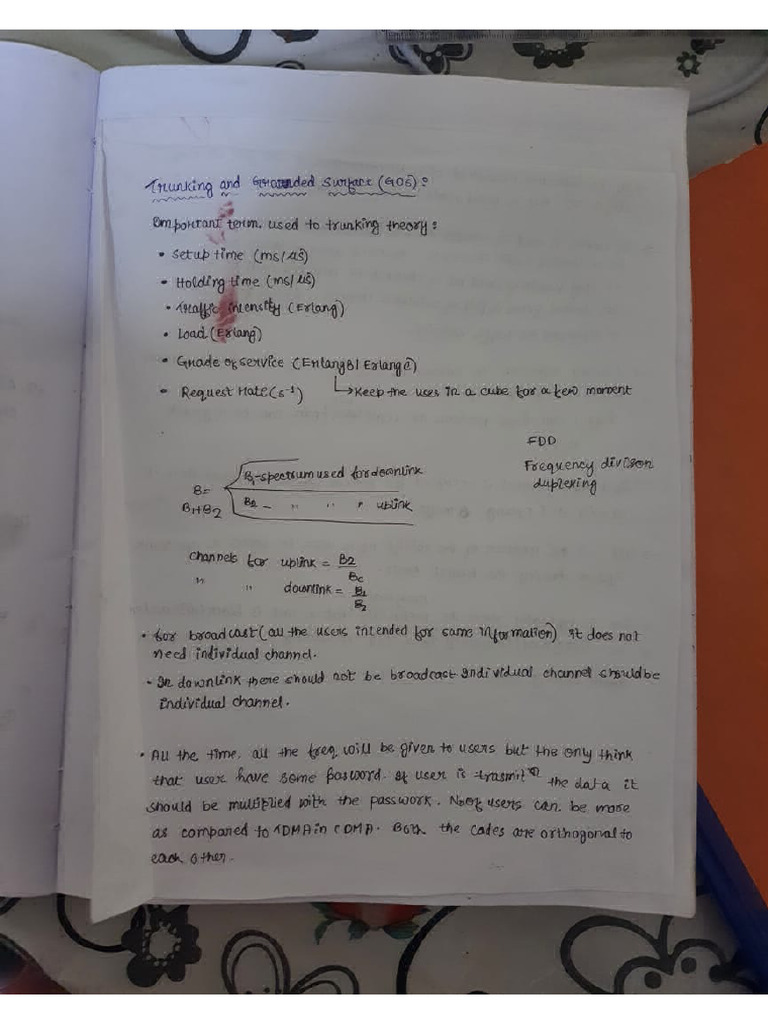 Trunking and Grounded Surface (GOS):
Important term. used to trunking theory:
• Setup time (ms/μs)
• Holding time (ms/μs)
• Traffic intensity (Erlang)
• Load (Erlang)
• Grade of service (ErlangB/ Erlang C)
• Request rate (s⁻¹) ↳ Keep the uses in a cube for a few moment
FDD
Frequency division
duplexing
B₁-spectrum used for downlink
B=
B1+B2
B2 - " " " uplink
channels for uplink = B2/Bc
" " downlink = B1/B2
• for broadcast (all the users intended for same information) it does not
need individual channel.
• In downlink there should not be broadcast individual channel should be
individual channel.
• All the time, all the freq will be given to users but the only think
that user have some pasword. If user is trasmit the data it
should be multiplied with the passwork. No of users can be more
as compared to TDMA in CDMA. Both the codes are orthogonal to
each other.